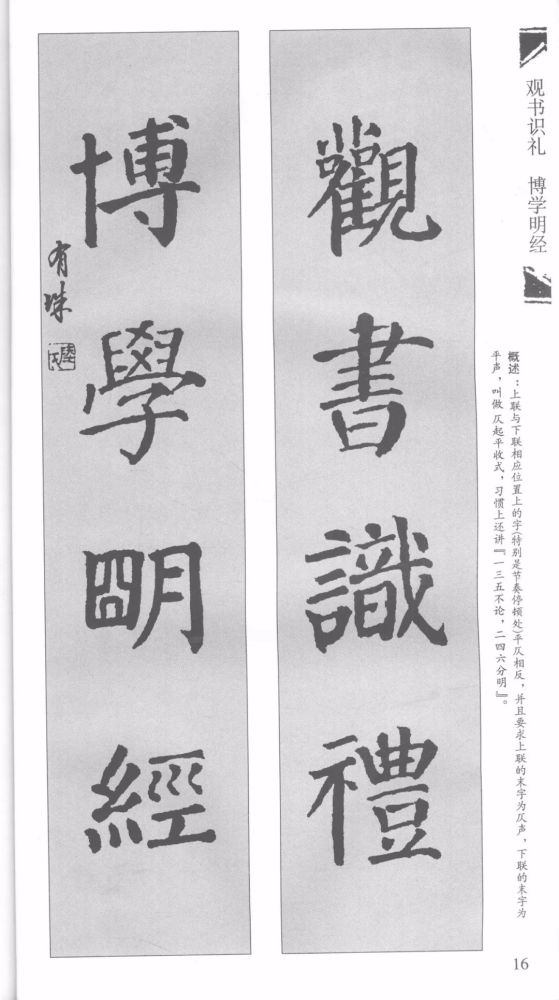 观书识礼 博学明经
概述：上联与下联相应位置上的字(特别是节奏停顿处)平仄相反，并且要求上联的末字为仄声，下联的末字为
平声，叫做仄起平收式，习惯上还讲『一三五不论，二四六分明』。
觀書識禮
博學明經
有珠
16